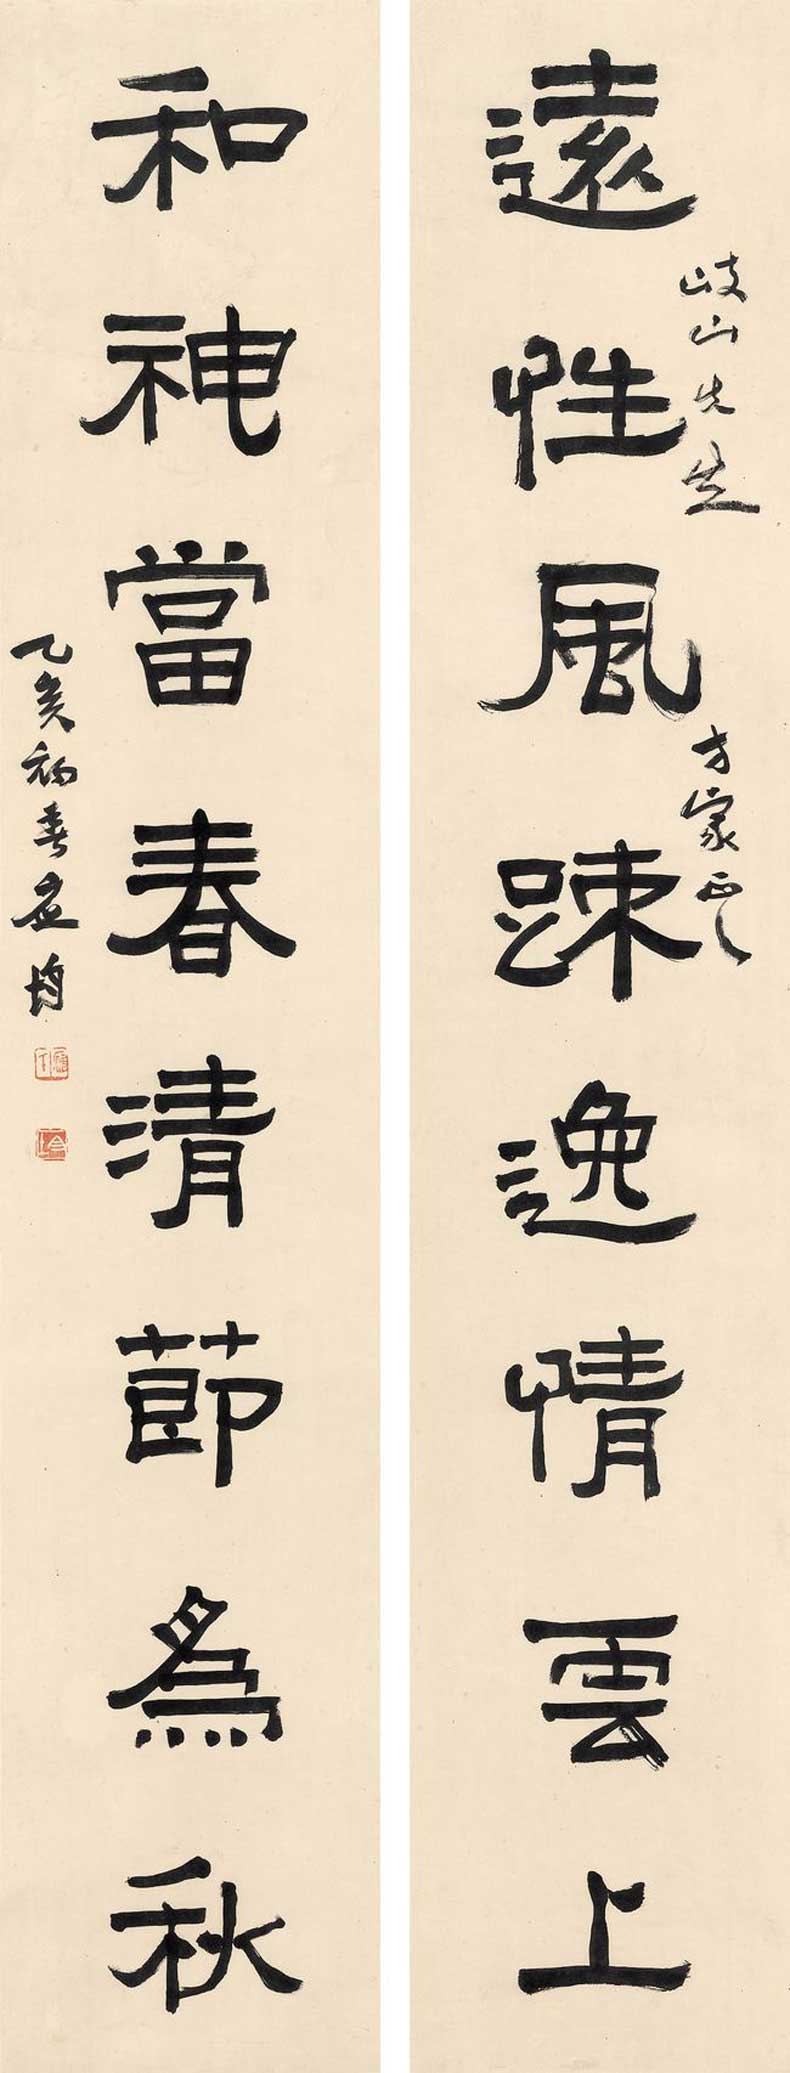 遠性風踈逸情雲上
岐山先生
方家正之
和神當春清節為秋
乙亥初春應均